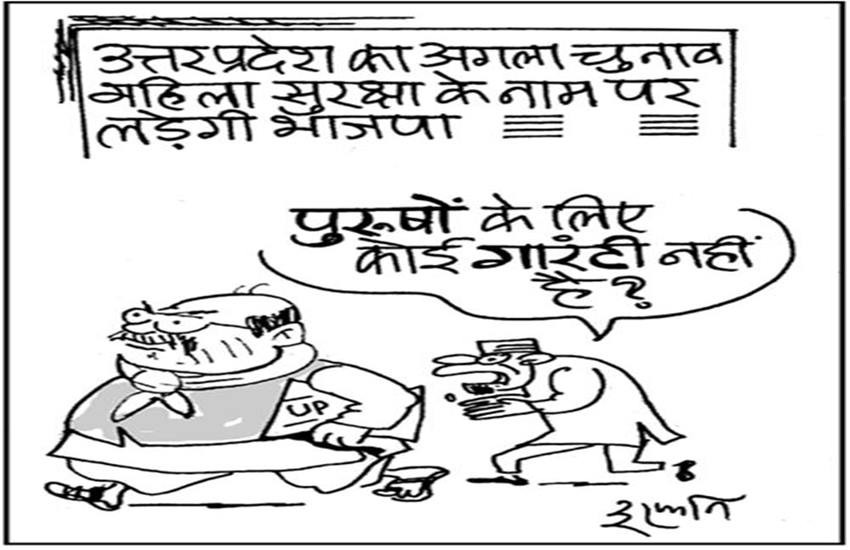 उत्तरप्रदेश का अगला चुनाव
महिला सुरक्षा के नाम पर
लड़ेगी भाजपा
पुरूषों के लिए
कोई गारंटी नहीं
है?
UP